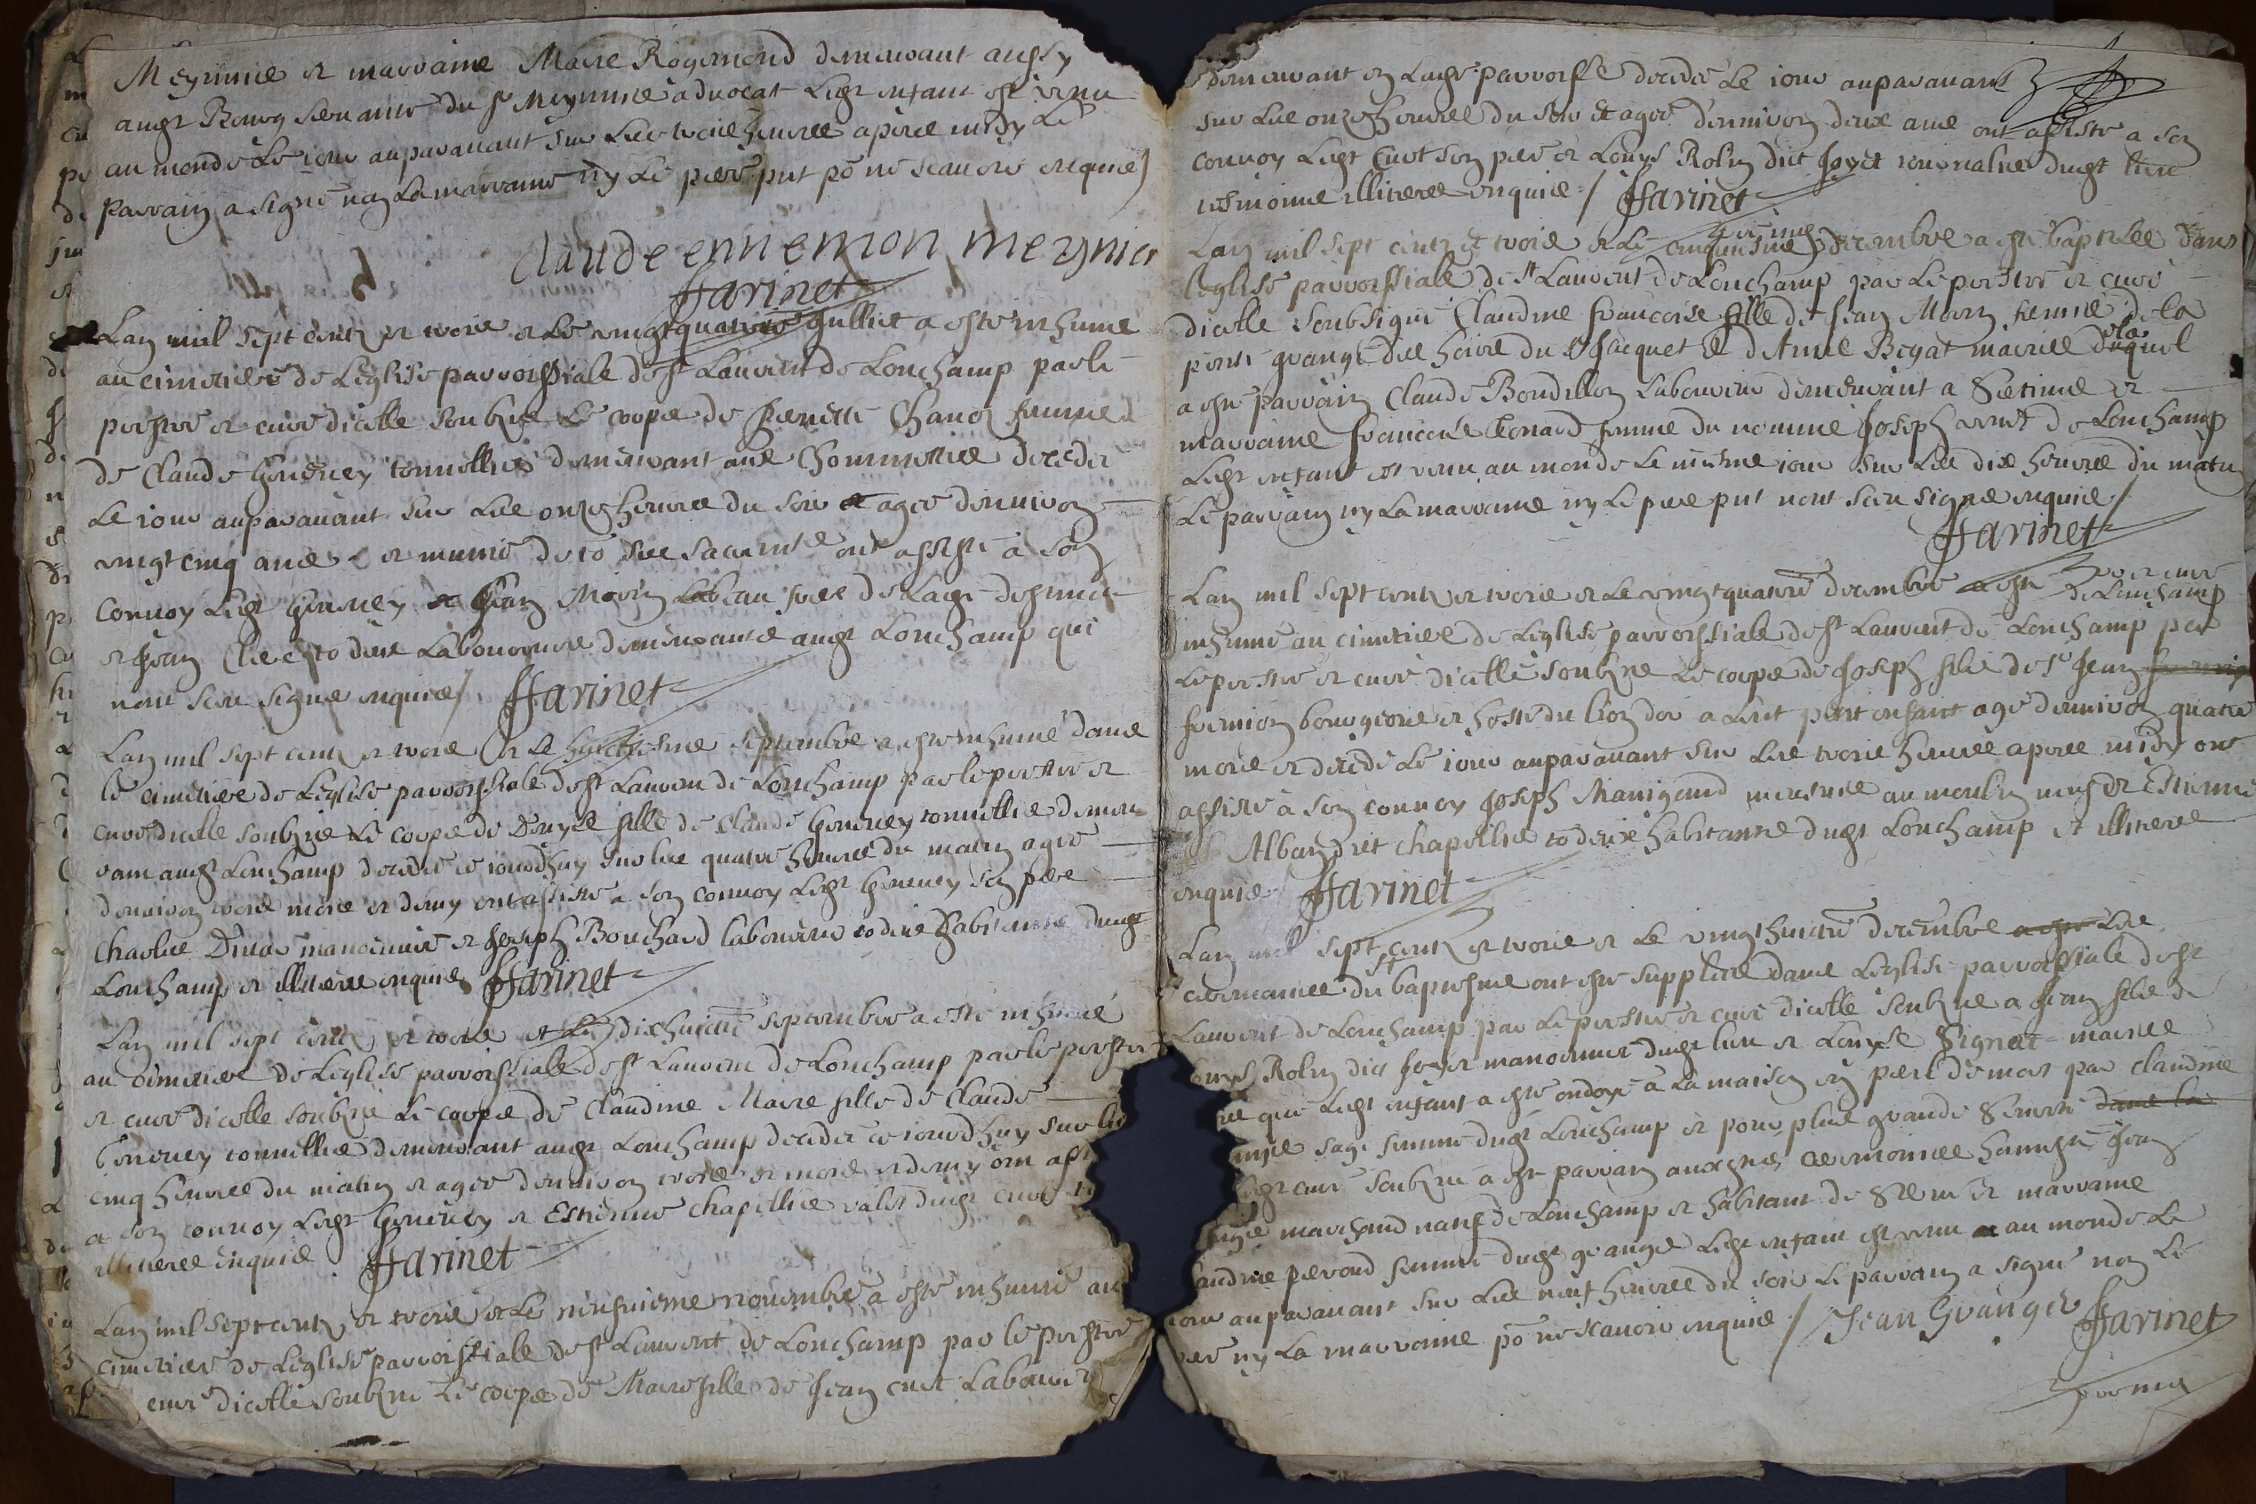 Meynnie et marraine Marie Rogemond demeurant aussy
audt Bourg servante du sr Meynnier advocat Ledt enfant est venu
au monde Le iour auparavant sur Les trois heures apres midy Le
parrain a signé non La marraine ny Le pere pnt po ne scavoir enquis
Claude ennemon meynier
Farinet
Lan mil sept centz et trois et Le vingtquatre Julliet a esté inhumé
au cimetiere de Leglise parroissiale de st Laurent de Lonchamp par le
prestre et curé dicelle soubzné Le corps de Pierrette Chanoz femme
de Claude Genevey tonnellier demeurant aux Chommeries decedée
Le iour auparavant sur Les onze heures du soir et agée denviron
vingt cinq ans et munie de to ses sacrents ont assisté à son
convoy Ledt Genevey et Jean Morin Labeau frere de Lade defuncte
et Jean Clec to deux Laboureurs demeurants audt Lonchamp qui
nont sceu signer enquis Farinet
Lan mil sept centz et trois et Le huictiesme septembre a esté inhumé dans
le cimetiere de Leglise parroissiale de st Laurent de Lonchamp par le prestre et
curé dicelle soubzné Le corps de Denyse fille de Claude Genevey tonnellier demeu-
rant audt Lonchamp decedée ce iourdhuy sur les quatre heures du matin agée
denviron trois mois et demy ont assisté a son convoy Ledt Genevey son pere
Charles Dunad manoeuvre et Joseph Bouchard laboureur to deux habitants dudt
Lonchamp et illiterés enquis Farinet
Lan mil sept centz et trois et Le dixhuictie septembre a esté inhumé
au cimetiere de Leglise parroissiale de st Laurent de Lonchamp par le prestre
et curé dicelle soubzné Le corps de Claudine Marie fille de Claude
Genevey tonnellier demeurant audt Lonchamp decedée ce iourdhuy sur les
cinq heures du matin et agée denviron trois mois et demy ont ass
a son convoy Ledt Genevey et Estienne Chapellier valet dudt curé
illiterés enquis Farinet
Lan mil sept centz et trois et Le neufvieme novembre a esté inhumé au
cimetiere de Leglise parroissiale de st Laurent de Lonchamp par le prestre
curé dicelle soubzné Le corps de Marie fille de Jean Curt Laboureur
demeurant en Lade parroisse decedée Le iour auparavant
sur Les onze heures du soir et agée denviron deux ans ont assisté a son
convoy Ledt Curt son pere et Louys Rolin dict Joyet iournalier dudt lieu
tesmoins illiterés enquis / Farinet
Lan mil sept centz et trois et Le cinquiesme decembre a esté baptisée dans
leglise parroissiale de st Laurent de Lonchamp par Le prestre et curé
dicelle soubsigné Claudine francoise fille de Jean Morin fermier de la
petite grange des hoirs du sr Jacquet et dAnne Begat mariés de laquel
a esté parrain Claude Bondillon Laboureur demeurant a Setinne et
marraine francoise Leonard femme du nommé Joseph de Lonchamp
Ledt enfant est venu au monde Le mesme iour sur Les dix heures du matin
Le parrain ny La marraine ny Le pere pnt nont sceu signer enquis /
Farinet
Lan mil sept centz et trois et Le vingtquatre decembre a esté
inhumé au cimetiere de Leglise parroissiale de st Laurent de Lonchamp par
Le prestre et curé dicelle soubzné Le corps de Joseph fils de sr Jean
furnion bourgeois et hoste du lion dor a petit enfant agé denviron quatre
mois et decedé Le iour auparavant sur Les trois heures apres midy ont
assisté à son convoy Joseph Manigand meusnier au moulin neuf et Estienne
Albandret Chapellier to deux habitants dudt Lonchamp et illiterés
enquis Farinet
Lan mil sept centz et trois et Le vingthuictie decembre a esté Les
ceremonies du baptesme ont esté supplées dans Leglise parroissiale de st
Laurent de Lonchamp par Le prestre et curé dicelle soubzné a Jean fils de
Louys Rolin dict Joyet manoeuvre dudt lieu et Louyse Pignat mariés
que Ledt enfant a esté ondoyé à La maison en peril de mort par Claudine
sage femme dudt Lonchamp et pour plus grande seureté dans la
Ledt curé soubzné a esté parrain auxdites ceremonies honneste Jean
marchand natif de Lonchamp et habitant de et marraine
Claudine perroud femme dudt grange Ledt enfant est venu au monde Le
iour auparavant sur Les neuf heures du soir Le parrain a signé non Le
pere ny La marraine po ne scavoir enquis / Jean Granger Farinet